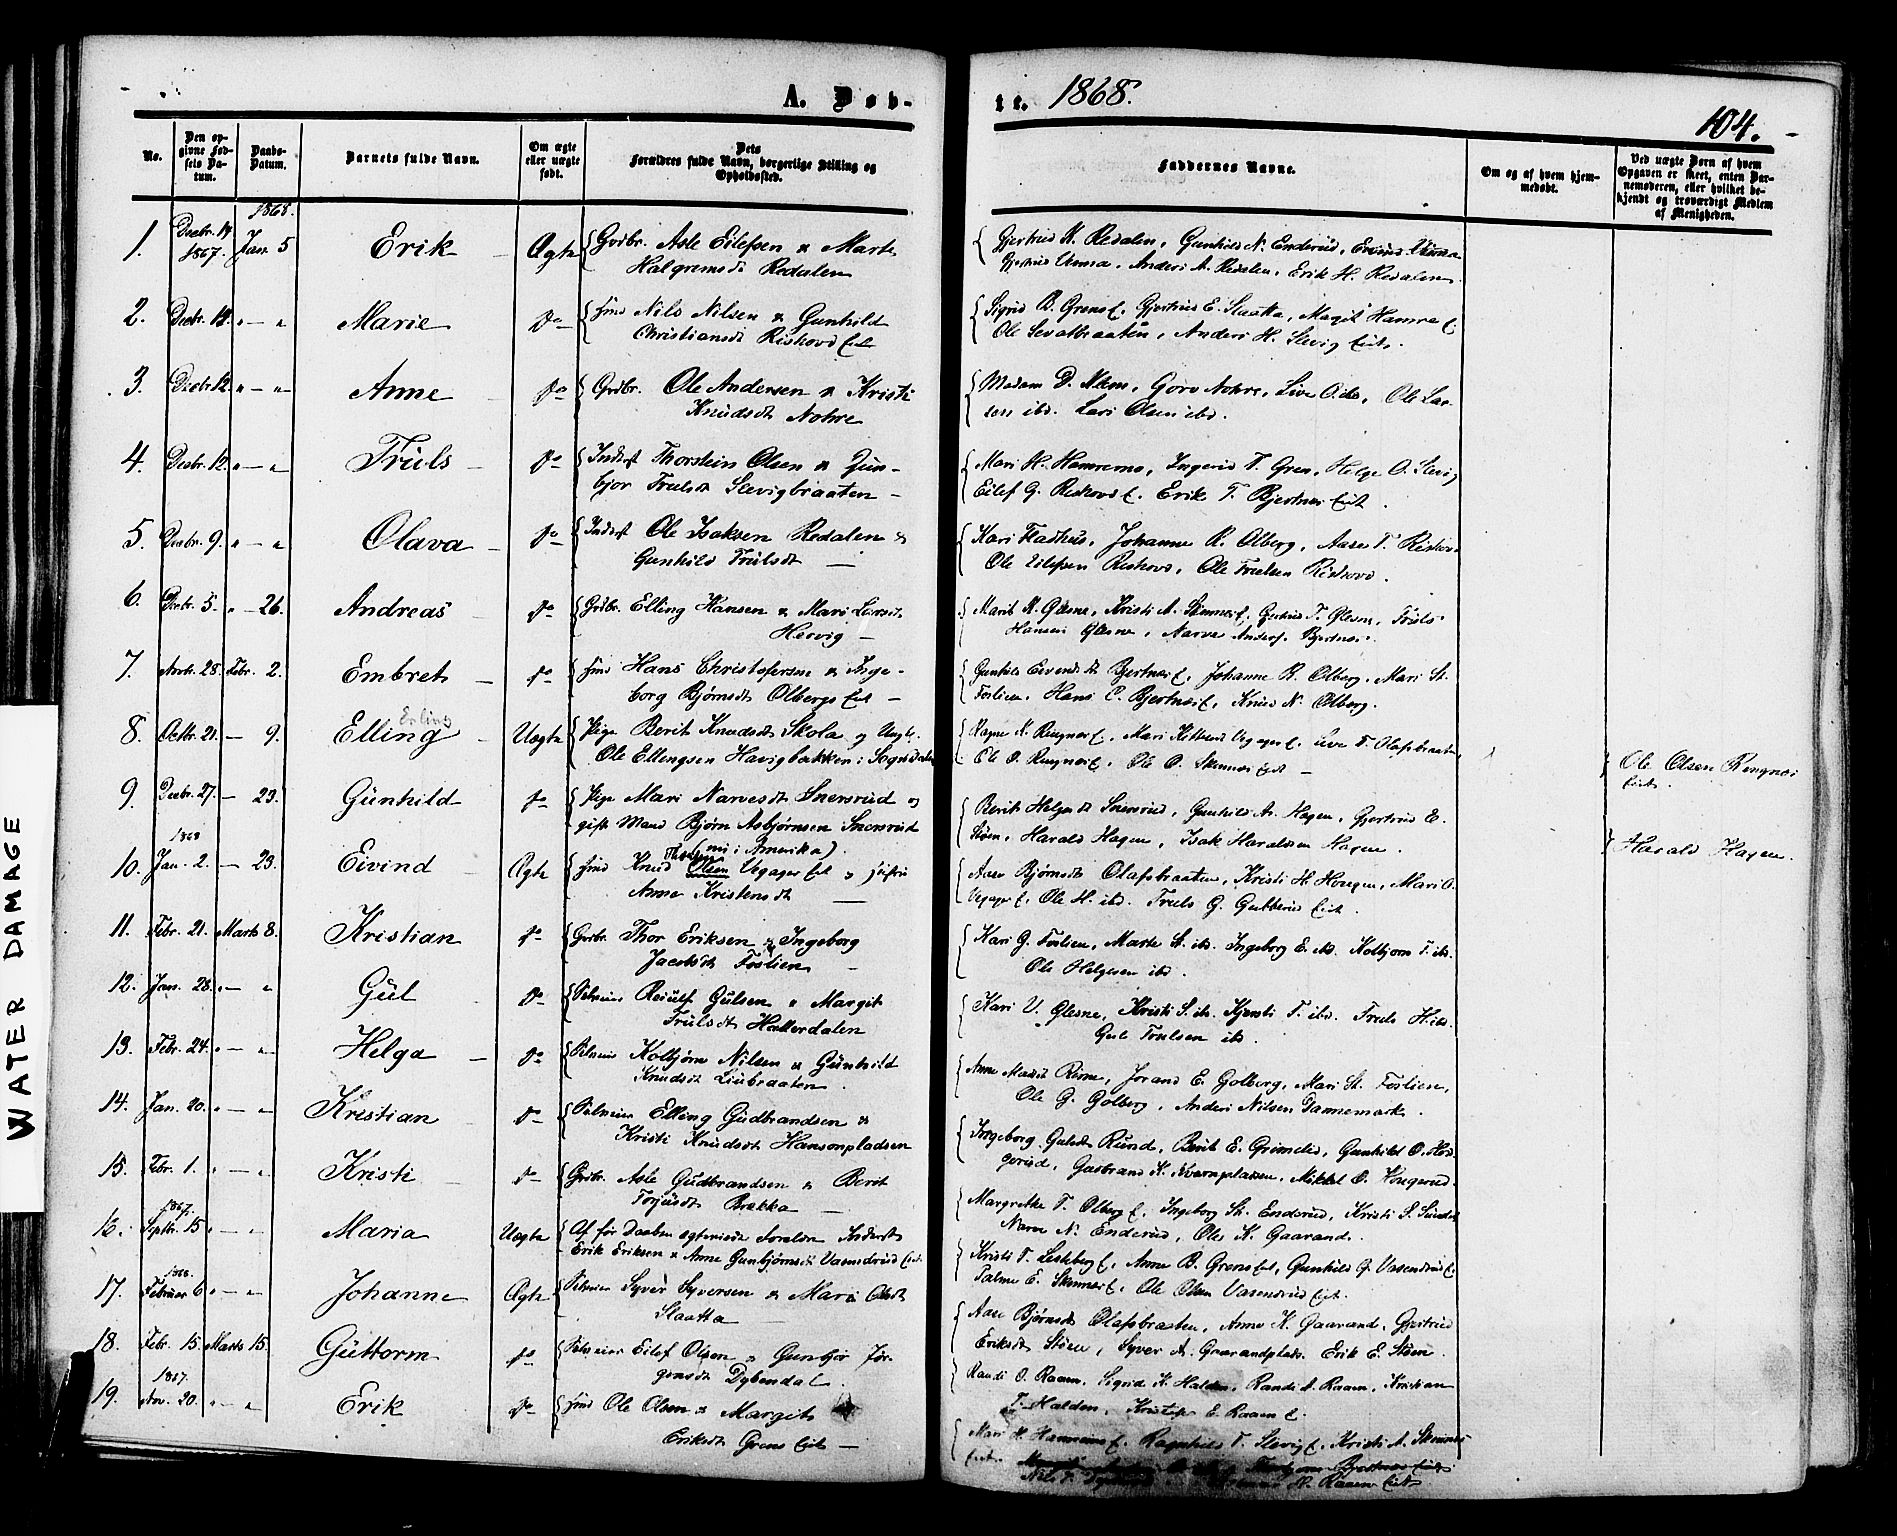 A. Døb-
te. 1868.
104.
No.
Den opgivne Fødsels Datum.
Daabs-Datum.
Barnets fulde Navn.
Om ægte eller uægte født.
Dets Forældres fulde Navn, borgerlige Stilling og Opholdssted.
Faddernes Navne.
Om og af hvem hjemmedøbt.
Ved uægte Børn af hvem Opgaven er skeet, enten Barnemoderen, eller hvilket bekjendt og troværdigt Medlem af Menigheden.
1868.
1. Decbr. 17 1867. Jan. 5 Erik Ægte Grdbr. Asle Eilefsen & Marte
Halgrimsdt Redalen
Gjertrud K. Redalen, Gunhild N. Enderud,
Anders A. Redalen, Erik H. Redalen
2. Decbr. 18. " — " Marie do Nils Nilsen & Gunhild
Christiansdt Riskovs Eiet
Sigrid B. Grens E. Gjertrud E. Slaatta, Margit Hamre E.
Ole Sevalbraaten, Anders H. Slevig Eiet.
3. Decbr. 12. " — " Anne do Grdbr. Ole Andersen & Kristi
Knudsdt Nohre
Madam D. Næss, Goro Nohre, Live O. ibd, Ole Lar-
sen ibd. Lars Olsen ibd.
4. Decbr. 12. " — " Truls do Inderst Thorstein Olsen & Gun-
bjor Trulsdt Slevigbraaten —
Mari H. Hamremo, Ingerid T. Gren, Helge O. Slevig
Eilef G. Riskovs E. Erik T. Bjertnes Eiet.
5. Decbr. 9. " — " Olava do Inderst Ole Isaksen Redalen &
Gunhild Trulsdt —
Kari Fladhus, Johanne K. Olberg, Aase T. Riskov
Ole Eilefsen Riskovs, Ole Trulsen Riskovs.
6. Decbr. 5. " — 26. Andreas do Grdbr. Elling Hansen & Mari Larsdt
Hervig —
Marit K. Glesne, Kristi A. Skinnes E. Gjertrud T. Glesne, Truls
Hansen Glesne, Narve Anders. Bjertnes.
7. Novbr. 28. Febr. 2. Embret do Hans Christofersen & Inge-
borg Bjørnsdt Olbergs Eiet —
Gunhild Eivendsdt Bjertnes E. Johanne K. Olberg, Mari St.
Foslien, Hans C. Bjertnes E, Knud N. Olberg.
Erling
8. Octbr. 21. — 9. Elling Uægte Pige Berit Knudsdt Skola og Ungk.
Ole Ellingsen Havigbakken i Sognedalen
Ragne K. Ringnes E. Mari Kittelsd Vegager E. Live T. Olafsbraaten,
Ole O. Ringnes E, Ole O. Skinnes Eiet —
Ole Olsen Ringnes
Eiet.
9. Decbr. 27. — 23. Gunhild do Pige Mari Narvesdt Snersrud og
gift Mand Bjørn Asbjørnsen Snersrud
(nu i Amerika).
Berit Helgesdt Snersrud, Gunhild Ar. Hagen, Gjertrud E.
Støen, Harald Hagen, Isak Haraldsen Hagen.
Harald Hagen.
1868
10. Jan. 2. — 23. Eivind Ægte Knud Olsen Vegager Eiet & Hustru
Anne Kristensdt —
Aase Bjørnsdt Olafsbraaten, Kristi H. Hougen, Mari O.
Vegager E. Ole H. ibd. Truls G. Gubberud Eiet.
11. Febr. 21. Marts 8. Kristian do Grdbr. Thor Eriksen & Ingeborg
Jacobsdt Foslien —
Kari G. Foslien, Marte St. ibd. Ingeborg E. ibd. Kolbjørn T. ibd.
Ole Helgesen ibd.
12. Jan. 28. " — " Gul do Selveier Reiulf Gulsen & Margit
Trulsdt Hallerdalen
Kari V. Glesne, Kristi S. ibd. Kjersti T. ibd. Truls H. ibd.
Gul Trulsen ibd.
13. Febr. 24. " — " Helga do Selveier Kolbjørn Nilsen & Gunhild
Knudsdt Liubraaten.
Anne Marit Rime, Jorand E. Golberg, Mari St. Foslien,
Ole G. Golberg, Anders Nilsen Dannemark.
14. Jan. 20. " — " Kristian do Selveier Elling Gudbrandsen &
Kristi Knudsdt Hansonpladsen
Ingeborg Gulsdt Rund, Berit E. Grimeli, Gunhild O. Hou-
gerud, Gudbrand K. Kvernpladsen, Mikkel O. Hougerud.
15. Febr. 1. " — " Kristi do Grdbr. Asle Gudbrandsen & Berit
Torjusdt Brekka —
Margrethe T. Olberg E, Ingeborg St. Enderud, Kristi S. Sundet
Narve N. Enderud, Ole K. Gaarand.
1867.
16. Septbr. 15 " — " Maria Uægte Af før Daaben ægteviede Forældre Inderst
Erik Eriksen & Anne Gunbjørnsdt Vasendrud Eiet.
Kristi T. Lesteberg E, Anne B. Grens Eiet, Gunhild G. Vasendrud E.
Palme E. Skinnes E, Ole Olsen Vasendrud Eiet.
1868.
17. Februar 6 " — " Johanne Ægte Selveier Syver Syversen & Mari Olsdt
Slaatta —
Aase Bjørnsdt Olafsbraaten, Anne K. Gaarand, Gjertrud
Eriksdt Støen, Syver A. Gaarandplads. Erik E. Støen.
18. Febr. 15. Marts 15. Guttorm do Selveier Eilef Olsen & Gunbjør Jør-
gensdt Dybendal.
Randi O. Raaen, Sigrid K. Halden, Randi A. Raaen, Kristian
T. Halden, Kristofer E. Raaen E.
1867.
19. Nov. 20. " — " Erik do Ole Olsen & Margit
Eriksdt Grens Eiet —
Mari K. Hamremo E. Ragnhild T. Slevig E. Kristi A. Skinnes
Eiet.
Nils T. N. Raaen Eiet.
WATER DAMAGE